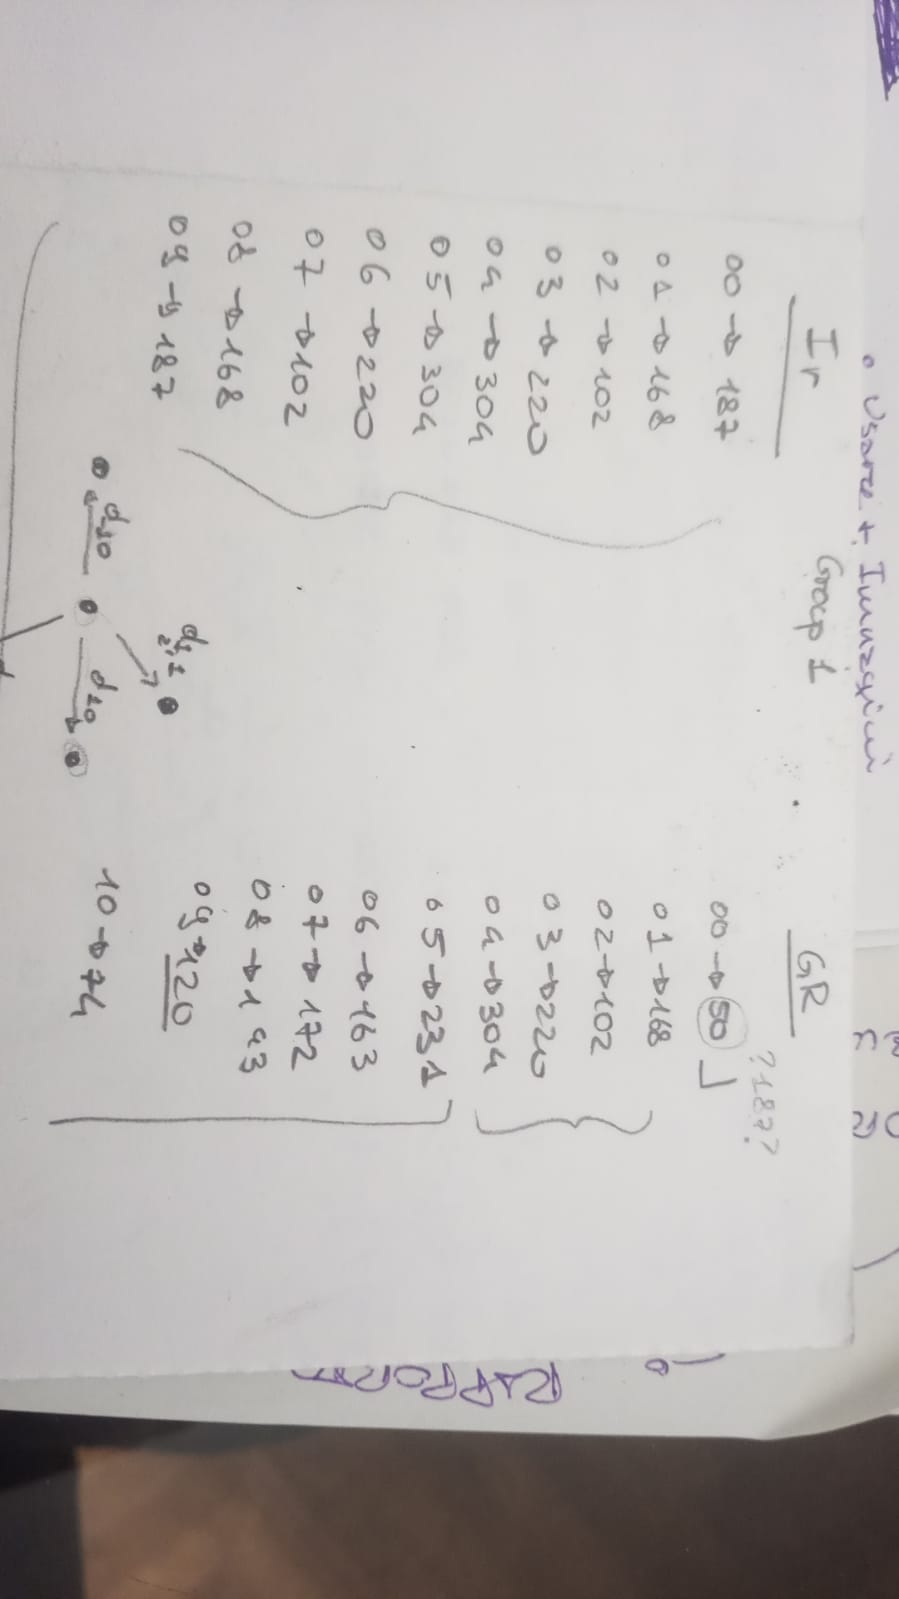 • Usare + Immagini
Ir
Group 1
GR
?187?
00 → 187
01 → 168
02 → 102
03 → 220
04 → 304
05 → 304
06 → 220
07 → 102
08 → 168
09 → 187
00 → 50
01 → 168
02 → 102
03 → 220
04 → 304
05 → 231
06 → 163
07 → 172
08 → 143
09 → 120
10 → 74
d-10
d10
RAPPORTO